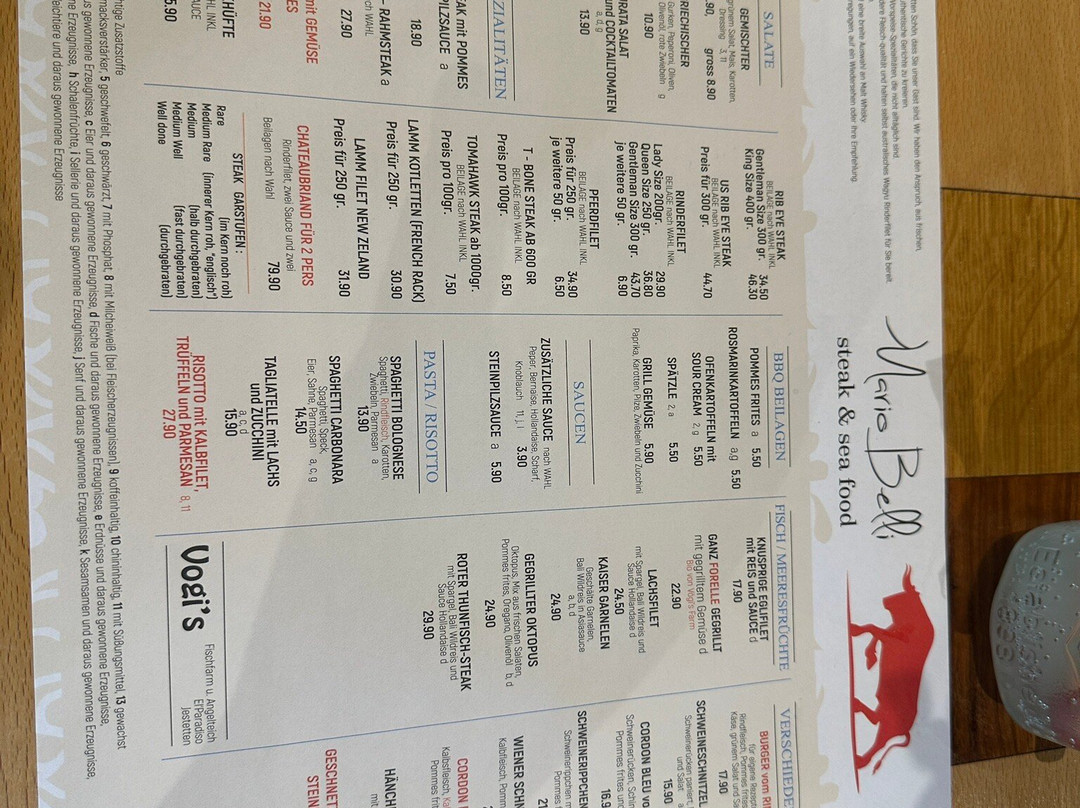 Mario Belli
steak & sea food
SALATE
GEMISCHTER
grünem Salat, Mais, Karotten,
Dressing 3, 11
gross 8.90
Gurken, Peperoni, Oliven,
Olivenöl, rote Zwiebeln g
10.90
und COCKTAILTOMATEN
a, d, g
13.90
ZIALITÄTEN
ZAK mit POMMES
ILZSAUCE a
18.90
- RAHMSTEAK a
ach WAHL
27.90
mit GEMÜSE
21.90
RIB EYE STEAK
BEILAGE nach WAHL INKL
Gentleman Size 300 gr. 34.50
King Size 400 gr. 46.30
US RIB EYE STEAK
BEILAGE nach WAHL INKL
Preis für 300 gr. 44.70
RINDERFILET
BEILAGE nach WAHL INKL
Lady Size 200gr. 29.90
Queen Size 250 gr. 36.80
Gentleman Size 300 gr. 43.70
je weitere 50 gr. 6.90
PFERDFILET
BEILAGE nach WAHL INKL
Preis für 250 gr. 34.90
je weitere 50 gr. 6.50
T - BONE STEAK AB 600 GR
BEILAGE nach WAHL INKL
Preis pro 100gr. 8.50
TOMAHAWK STEAK ab 1000gr.
BEILAGE nach WAHL INKL
Preis pro 100gr. 7.50
LAMM KOTLETTEN (FRENCH RACK)
Preis für 250 gr. 30.90
LAMM FILET NEW ZELAND
Preis für 250 gr. 31.90
CHATEAUBRIAND FÜR 2 PERS
Rinderfilet, zwei Sauce und zwei
Beilagen nach Wahl 79.90
STEAK GARSTUFEN :
Rare (im Kern noch roh)
Medium Rare (innerer Kern roh, "englisch")
Medium (halb durchgebraten)
Medium Well (fast durchgebraten)
Well done (durchgebraten)
BBQ BEILAGEN
POMMES FRITES a 5.50
ROSMARINKARTOFFELN a,g 5.50
OFENKARTOFFELN mit
SOUR CREAM 2, g 5.50
SPÄTZLE 2, a 5.50
GRILL GEMÜSE 5.90
Paprika, Karotten, Pilze, Zwiebeln und Zucchini
SAUCEN
ZUSÄTZLICHE SAUCE nach WAHL
Peper, Bernaise, Hollandaise, Scharf,
Knoblauch 11, j, i 3.90
STEINPILZSAUCE a 5.90
PASTA / RISOTTO
SPAGHETTI BOLOGNESE
Spaghetti, Rindfleisch, Karotten,
Zwiebeln, Parmesan a
13.90
SPAGHETTI CARBONARA
Spaghetti, Speck,
Eier, Sahne, Parmesan a, c, g
14.50
TAGLIATELLE mit LACHS
und ZUCCHINI
a, c, d
15.90
RISOTTO mit KALBFILET,
TRÜFFELN und PARMESAN 8, 11
27.90
FISCH / MEERESFRÜCHTE
KNUSPRIGE EGLIFILET
mit REIS und SAUCE d
17.90
GANZ FORELLE GEGRILLT
mit gegrilltem Gemüse d
Bio von Vogi's Farm
22.90
LACHSFILET
mit Spargel, Bali Wildreis und
Sauce Hollandaise d
24.50
KAISER GARNELEN
Geschälte Garnelen,
Bali Wildreis in Asiasauce
a, b, d
24.90
GEGRILLTER OKTOPUS
Oktopus, Mix aus frischen Salaten,
Pommes frites, Oregano, Olivenöl b, d
24.90
ROTER THUNFISCH-STEAK
mit Spargel, Bali Wildreis und
Sauce Hollandaise d
29.90
Vogi's
Fischfarm u. Angelteich
El'Paradiso
Jestetten
VERSCHIEDE
BURGER vom RI
17.90
SCHWEINESCHNITZEL
Schweinerücken paniert,
und Salat
15.90
CORDON BLEU vo
Schweinerücken, Schin
Pommes frites und
16.9
SCHWEINERIPPCHEN
Schweinerippchen m
Pommes
21
WIENER SCHN
Kalbfleisch, Pomm
CORDON
Pommes fr
HÄNCH
mit
GESCHNET
STEIN
htige Zusatzstoffe
macksverstärker, 5 geschwefelt, 6 geschwärzt, 7 mit Phosphat, 8 mit Milcheiweiß (bei Fleischerzeugnissen), 9 koffeinhaltig, 10 chininhaltig, 11 mit Süßungsmittel, 13 gewachst
us gewonnene Erzeugnisse, c Eier und daraus gewonnene Erzeugnisse, d Fische und daraus gewonnene Erzeugnisse, e Erdnüsse und daraus gewonnene Erzeugnisse,
ne Erzeugnisse, h Schalenfrüchte, i Sellerie und daraus gewonnene Erzeugnisse, j Senf und daraus gewonnene Erzeugnisse, k Sesamsamen und daraus gewonnene Erzeugnisse,
eichtiere und daraus gewonnene Erzeugnisse